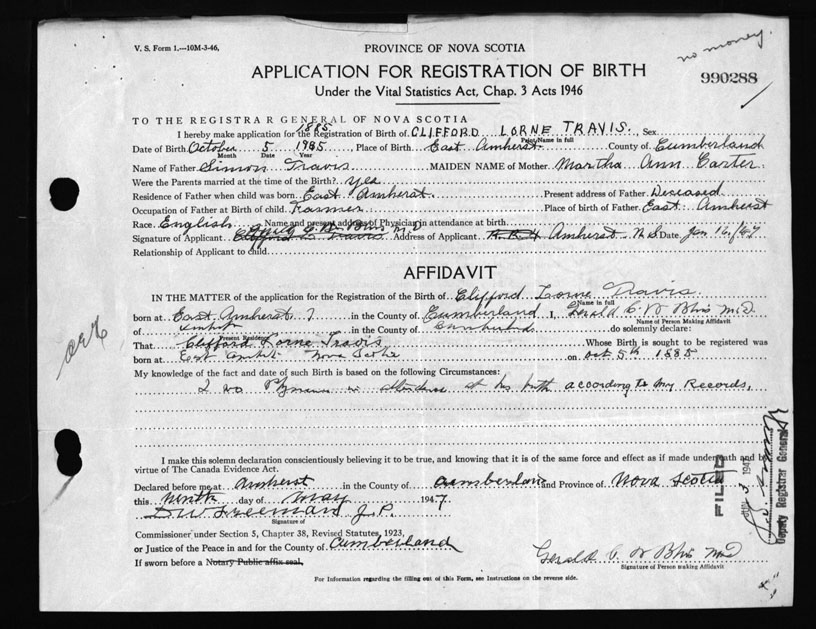 no money.
V. S. Form 1.—10M-3-46.
PROVINCE OF NOVA SCOTIA
APPLICATION FOR REGISTRATION OF BIRTH
990288
Under the Vital Statistics Act, Chap. 3 Acts 1946
TO THE REGISTRAR GENERAL OF NOVA SCOTIA
1885
I hereby make application for the Registration of Birth of CLIFFORD LORNE TRAVIS. Sex
Print Name in full
Date of Birth October 5 1985 Place of Birth East Amherst County of Cumberland
Month Date Year
Name of Father Simon Travis MAIDEN NAME of Mother Martha Ann Carter
Were the Parents married at the time of the Birth? Yes
Residence of Father when child was born East Amherst. Present address of Father Deceased
Occupation of Father at Birth of child Farmer Place of birth of Father East Amherst
Race English Name and present address of Physician in attendance at birth M.D.
Signature of Applicant Clifford L. Travis Address of Applicant R.R.4 Amherst N.S. Date Jan 16/47
Relationship of Applicant to child
AFFIDAVIT
IN THE MATTER of the application for the Registration of the Birth of Clifford Lorne Travis.
Name in full
born at East Amherst in the County of Cumberland I, Gerald C. W. Bliss M.D.
Name of Person Making Affidavit
of Amherst in the County of Cumberland do solemnly declare:
Present Residence
That Clifford Lorne Travis Whose Birth is sought to be registered was
born at East Amherst Nova Scotia on Oct 5th 1885
My knowledge of the fact and date of such Birth is based on the following Circumstances:
I was Physician in attendance at his birth according to my Records,
I make this solemn declaration conscientiously believing it to be true, and knowing that it is of the same force and effect as if made under oath and by
virtue of The Canada Evidence Act.
Declared before me at Amherst in the County of Cumberland and Province of Nova Scotia
this Ninth day of May 1947
D W Freeman J.P.
Signature of
Commissioner under Section 5, Chapter 38, Revised Statutes, 1923,
or Justice of the Peace in and for the County of Cumberland
If sworn before a Notary Public affix seal,
Gerald C. W Bliss M.D
Signature of Person making Affidavit
For Information regarding the filling out of this Form, see Instructions on the reverse side.
FILED
1947
Deputy Registrar General